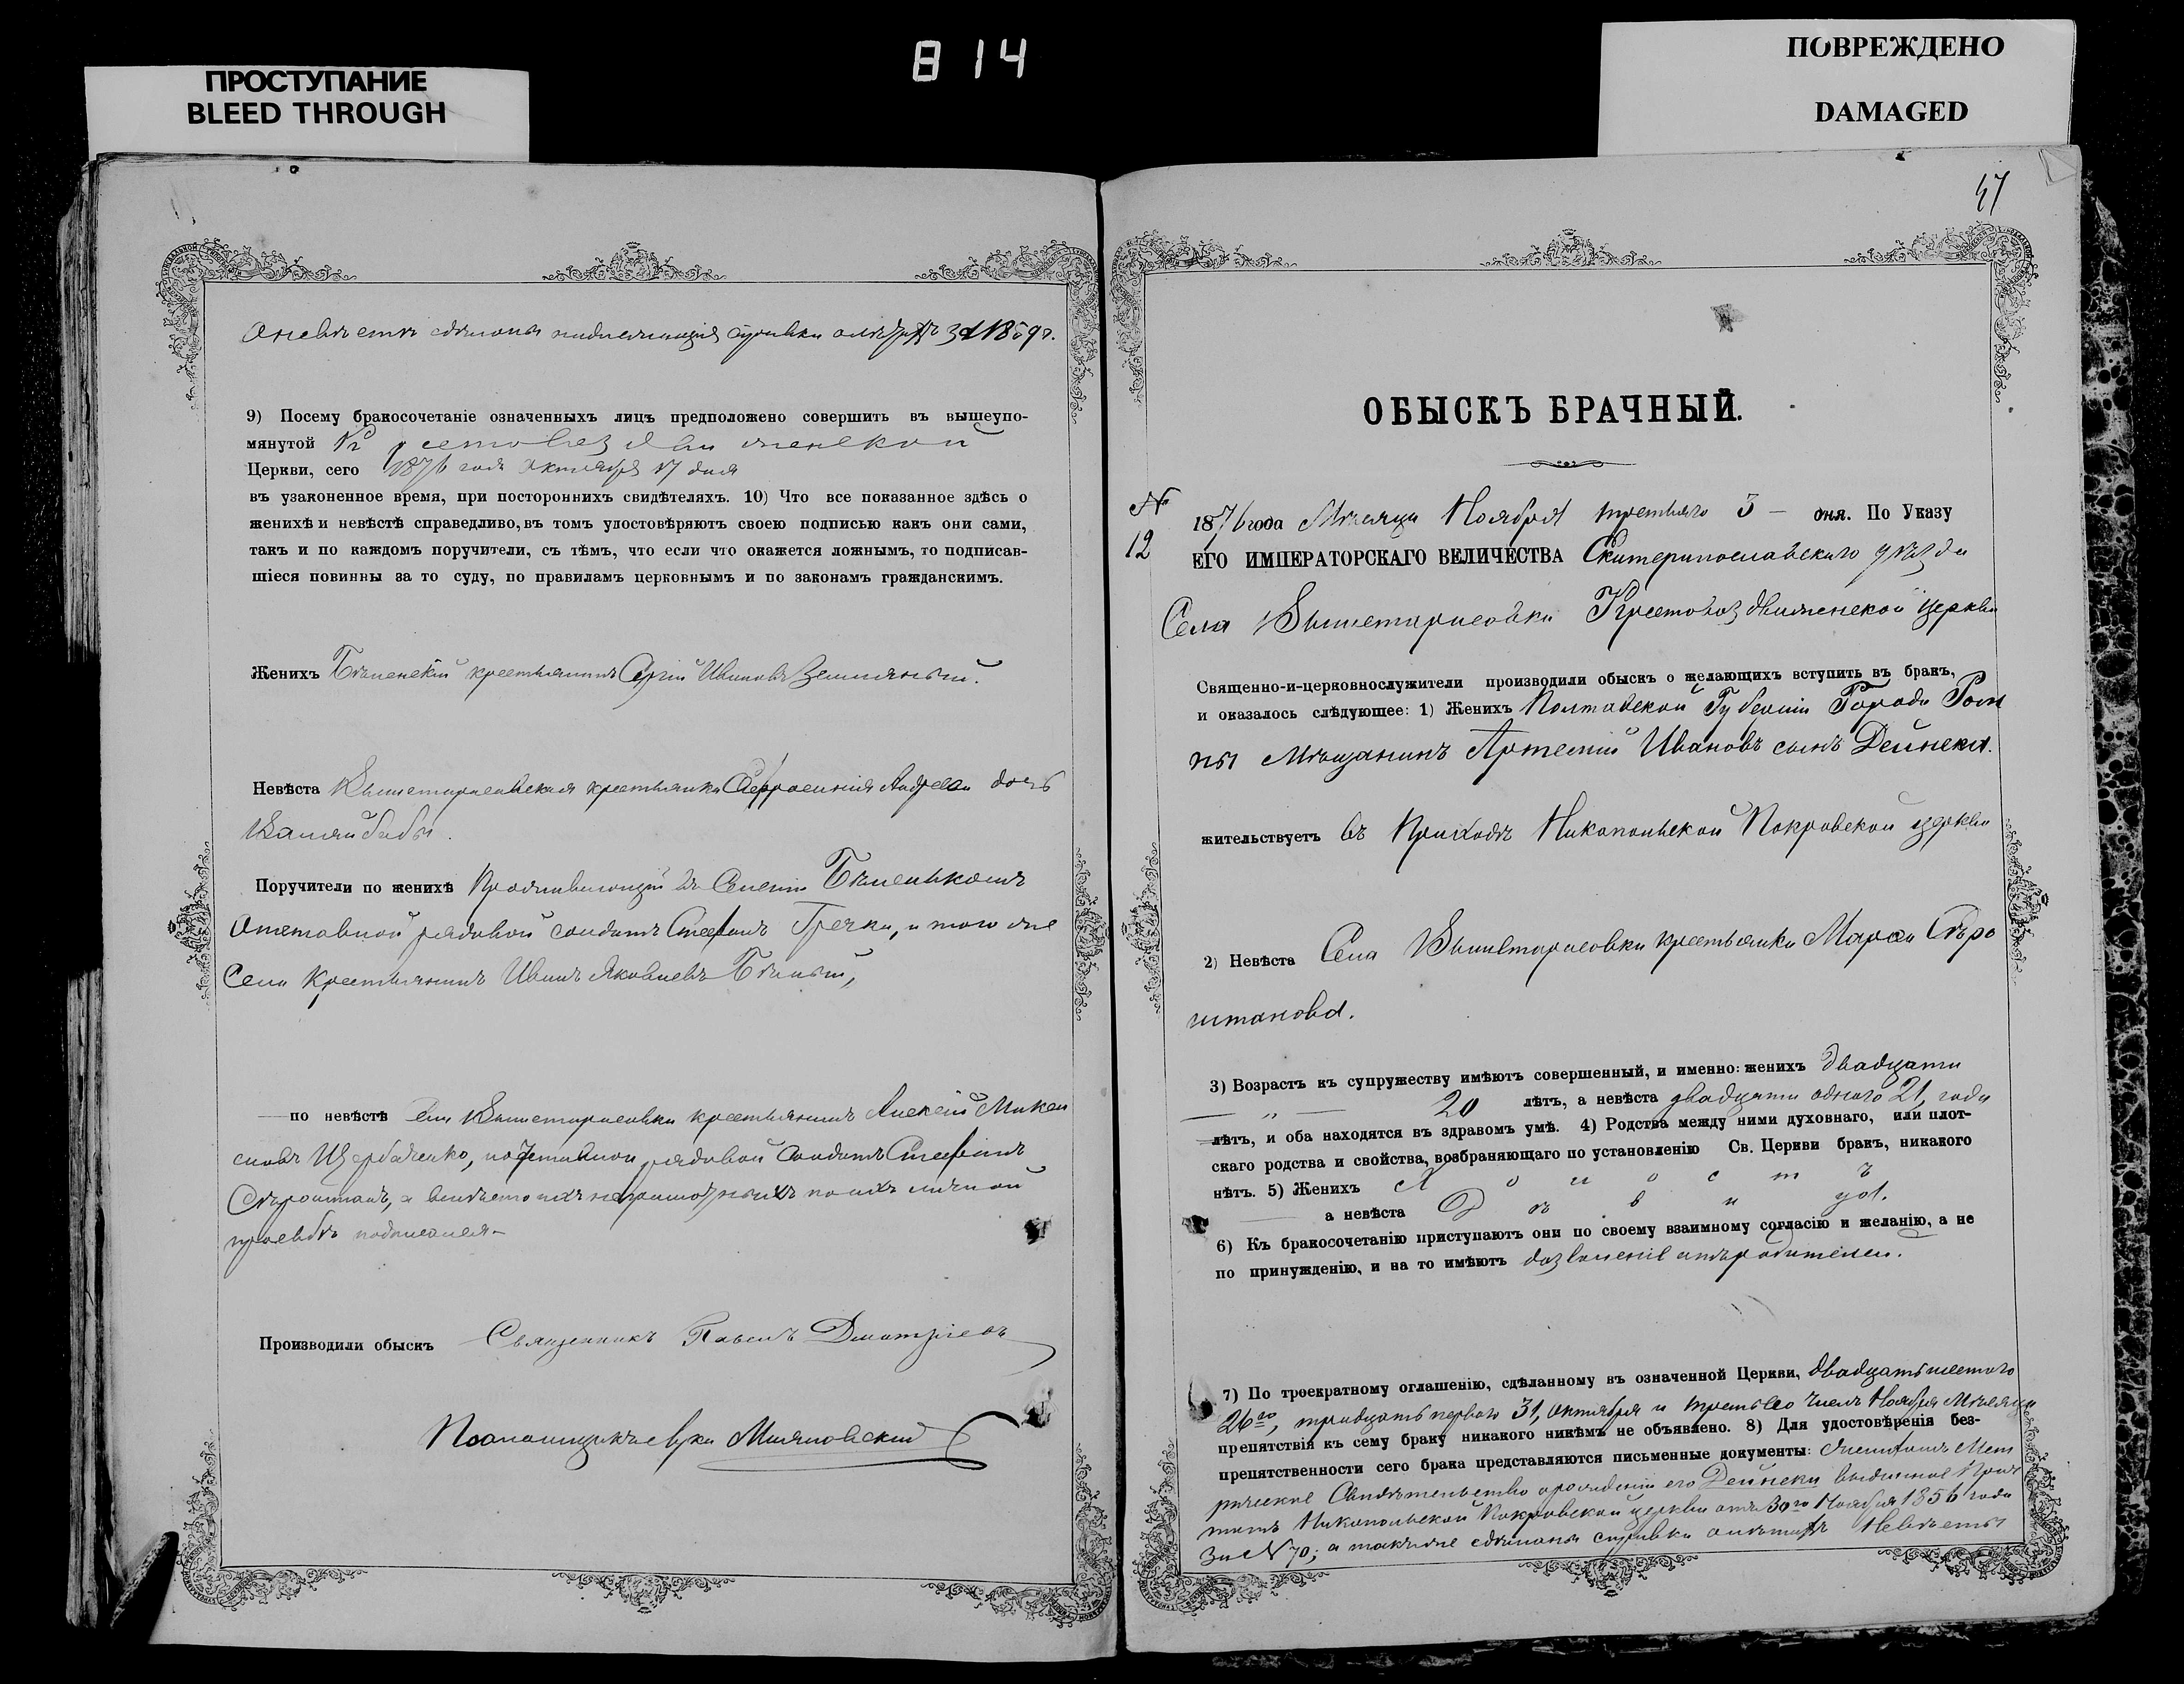 814
ПРОСТУПАНИЕ
BLEED THROUGH
ПОВРЕЖДЕНО
DAMAGED
сдѣланы надлежащія справки 1859 г.
9) Посему бракосочетаніе означенныхъ лицъ предположено совершить въ вышеупо-
мянутой Крестовоздвиженской
Церкви, сего 1876 года Октября 17 дня
въ узаконенное время, при постороннихъ свидѣтеляхъ. 10) Что все показанное здѣсь о
женихѣ и невѣстѣ справедливо, въ томъ удостовѣряютъ своею подписью какъ они сами,
такъ и по каждомъ поручители, съ тѣмъ, что если что окажется ложнымъ, то подписав-
шіеся повинны за то суду, по правиламъ церковнымъ и по законамъ гражданскимъ.
Женихъ крестьянинъ Сергій Ивановъ Земляный.
Невѣста Вышетарасовская крестьянка Андреева дочь
Поручители по женихѣ Проживающій въ Селеніи Бѣленькомъ
Отставной рядовой солдатъ Стефанъ Гречка, и того же
Села Крестьянинъ Иванъ Яковлевъ Бѣлый,
по невѣстѣ Села Вышетарасовки крестьянинъ Алексій
Щербаченко, рядовой Солдатъ Стефанъ
Сѣроштанъ, а вмѣсто ихъ неграмотныхъ по ихъ личной
просьбѣ подписался
Производили обыскъ Священникъ Павелъ Дмитріевъ
47
ОБЫСКЪ БРАЧНЫЙ.
№
12
1876 года Мѣсяца Ноября третьяго 3 – дня. По Указу
ЕГО ИМПЕРАТОРСКАГО ВЕЛИЧЕСТВА Екатеринославскаго уѣзда
Села Вышетарасовки Крестовоздвиженской церкви
Священно-и-церковнослужители производили обыскъ о желающихъ вступить въ бракъ,
и оказалось слѣдующее: 1) Женихъ Полтавской Губерніи Города Ром
ны Мѣщанинъ Артемій Ивановъ сынъ Дейнека.
жительствуетъ въ Приходѣ Никопольской Покровской церкви
2) Невѣста Села Вышетарасовки крестьянка Сѣро
штанова.
3) Возрастъ къ супружеству имѣютъ совершенный, и именно: женихъ двадцати
— „ — 20 лѣтъ, а невѣста двадцати одного 21, года
лѣтъ, и оба находятся въ здравомъ умѣ. 4) Родства между ними духовнаго, или плот-
скаго родства и свойства, возбраняющаго по установленію Св. Церкви бракъ, никакого
нѣтъ. 5) Женихъ Холостъ
а невѣста Дѣвица.
6) Къ бракосочетанію приступаютъ они по своему взаимному согласію и желанію, а не
по принужденію, и на то имѣютъ дозволеніе отъ родителей.
7) По троекратному оглашенію, сдѣланному въ означенной Церкви, двадцать шестаго
26го, тридцать перваго 31, Октября и третьяго чиселъ Ноября Мѣсяца
препятствія къ сему браку никакого никѣмъ не объявлено. 8) Для удостовѣренія без-
препятственности сего брака представляются письменные документы: Мет
рическое Свидѣтельство о рожденіи его Дейнеки выданное
Никопольской Покровской церкви отъ 30го Ноября 1856 года
За № 70; а также сдѣланы справки о лѣтахъ Невѣсты